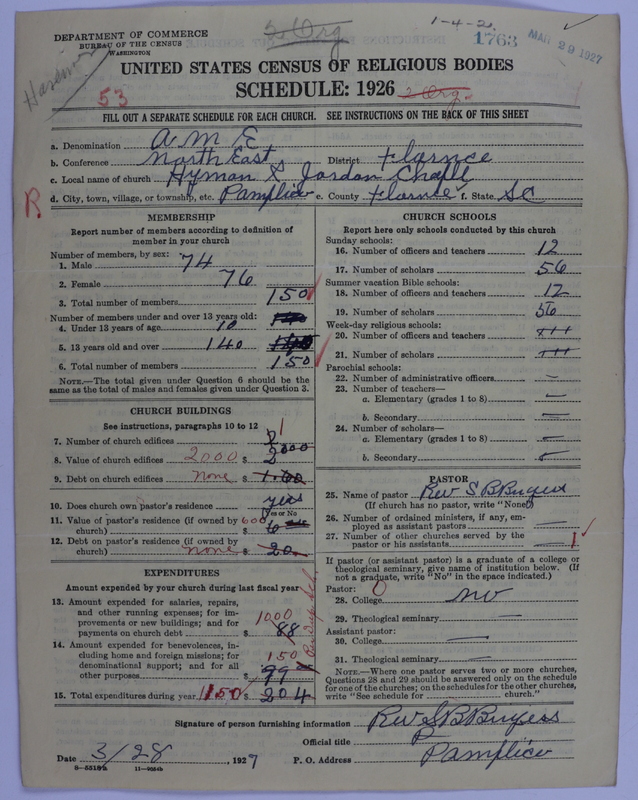 2 Org
1-4-2
DEPARTMENT OF COMMERCE
BUREAU OF THE CENSUS
WASHINGTON
1763
MAR 29 1927
UNITED STATES CENSUS OF RELIGIOUS BODIES
SCHEDULE: 1926
2 Org.
53
FILL OUT A SEPARATE SCHEDULE FOR EACH CHURCH. SEE INSTRUCTIONS ON THE BACK OF THIS SHEET
a. Denomination A M E
b. Conference North East District Flornce
c. Local name of church Hyman & Jordan Chapel
d. City, town, village, or township, etc. Pamplico e. County Flornce f. State SC
R
MEMBERSHIP
Report number of members according to definition of
member in your church
Number of members, by sex:
1. Male 74
2. Female 76
3. Total number of members 150
Number of members under and over 13 years old:
4. Under 13 years of age 10
5. 13 years old and over 140
6. Total number of members 150
NOTE.—The total given under Question 6 should be the
same as the total of males and females given under Question 3.
CHURCH BUILDINGS
See instructions, paragraphs 10 to 12
7. Number of church edifices 2 1
8. Value of church edifices 2000 $ 2000
9. Debt on church edifices none $ 1.00
10. Does church own pastor's residence yes
Yes or No
11. Value of pastor's residence (if owned by
church) 600 $ 6
12. Debt on pastor's residence (if owned by
church) none $ 20
EXPENDITURES
Amount expended by your church during last fiscal year
13. Amount expended for salaries, repairs,
and other running expenses; for im-
provements or new buildings; and for
payments on church debt 1000 $ 88
14. Amount expended for benevolences, in-
cluding home and foreign missions; for
denominational support; and for all
other purposes 150 $ 99
15. Total expenditures during year 1150 $ 204
CHURCH SCHOOLS
Report here only schools conducted by this church
Sunday schools:
16. Number of officers and teachers 12
17. Number of scholars 56
Summer vacation Bible schools:
18. Number of officers and teachers 12
19. Number of scholars 56
Week-day religious schools:
20. Number of officers and teachers
21. Number of scholars
Parochial schools:
22. Number of administrative officers —
23. Number of teachers—
a. Elementary (grades 1 to 8) —
b. Secondary —
24. Number of scholars—
a. Elementary (grades 1 to 8) —
b. Secondary
PASTOR
25. Name of pastor Rev S B Burgess
(If church has no pastor, write "None")
26. Number of ordained ministers, if any, em-
ployed as assistant pastors —
27. Number of other churches served by the
pastor or his assistants — 1
If pastor (or assistant pastor) is a graduate of a college or
theological seminary, give name of institution below. (If
not a graduate, write "No" in the space indicated.)
Pastor: 0
28. College no
29. Theological seminary —
Assistant pastor:
30. College —
31. Theological seminary —
NOTE.—Where one pastor serves two or more churches,
Questions 28 and 29 should be answered only on the schedule
for one of the churches; on the schedules for the other churches,
write "See schedule for church."
Signature of person furnishing information Rev S B Burgess
Official title P
Date 3/28, 1927 P. O. Address Pamplico